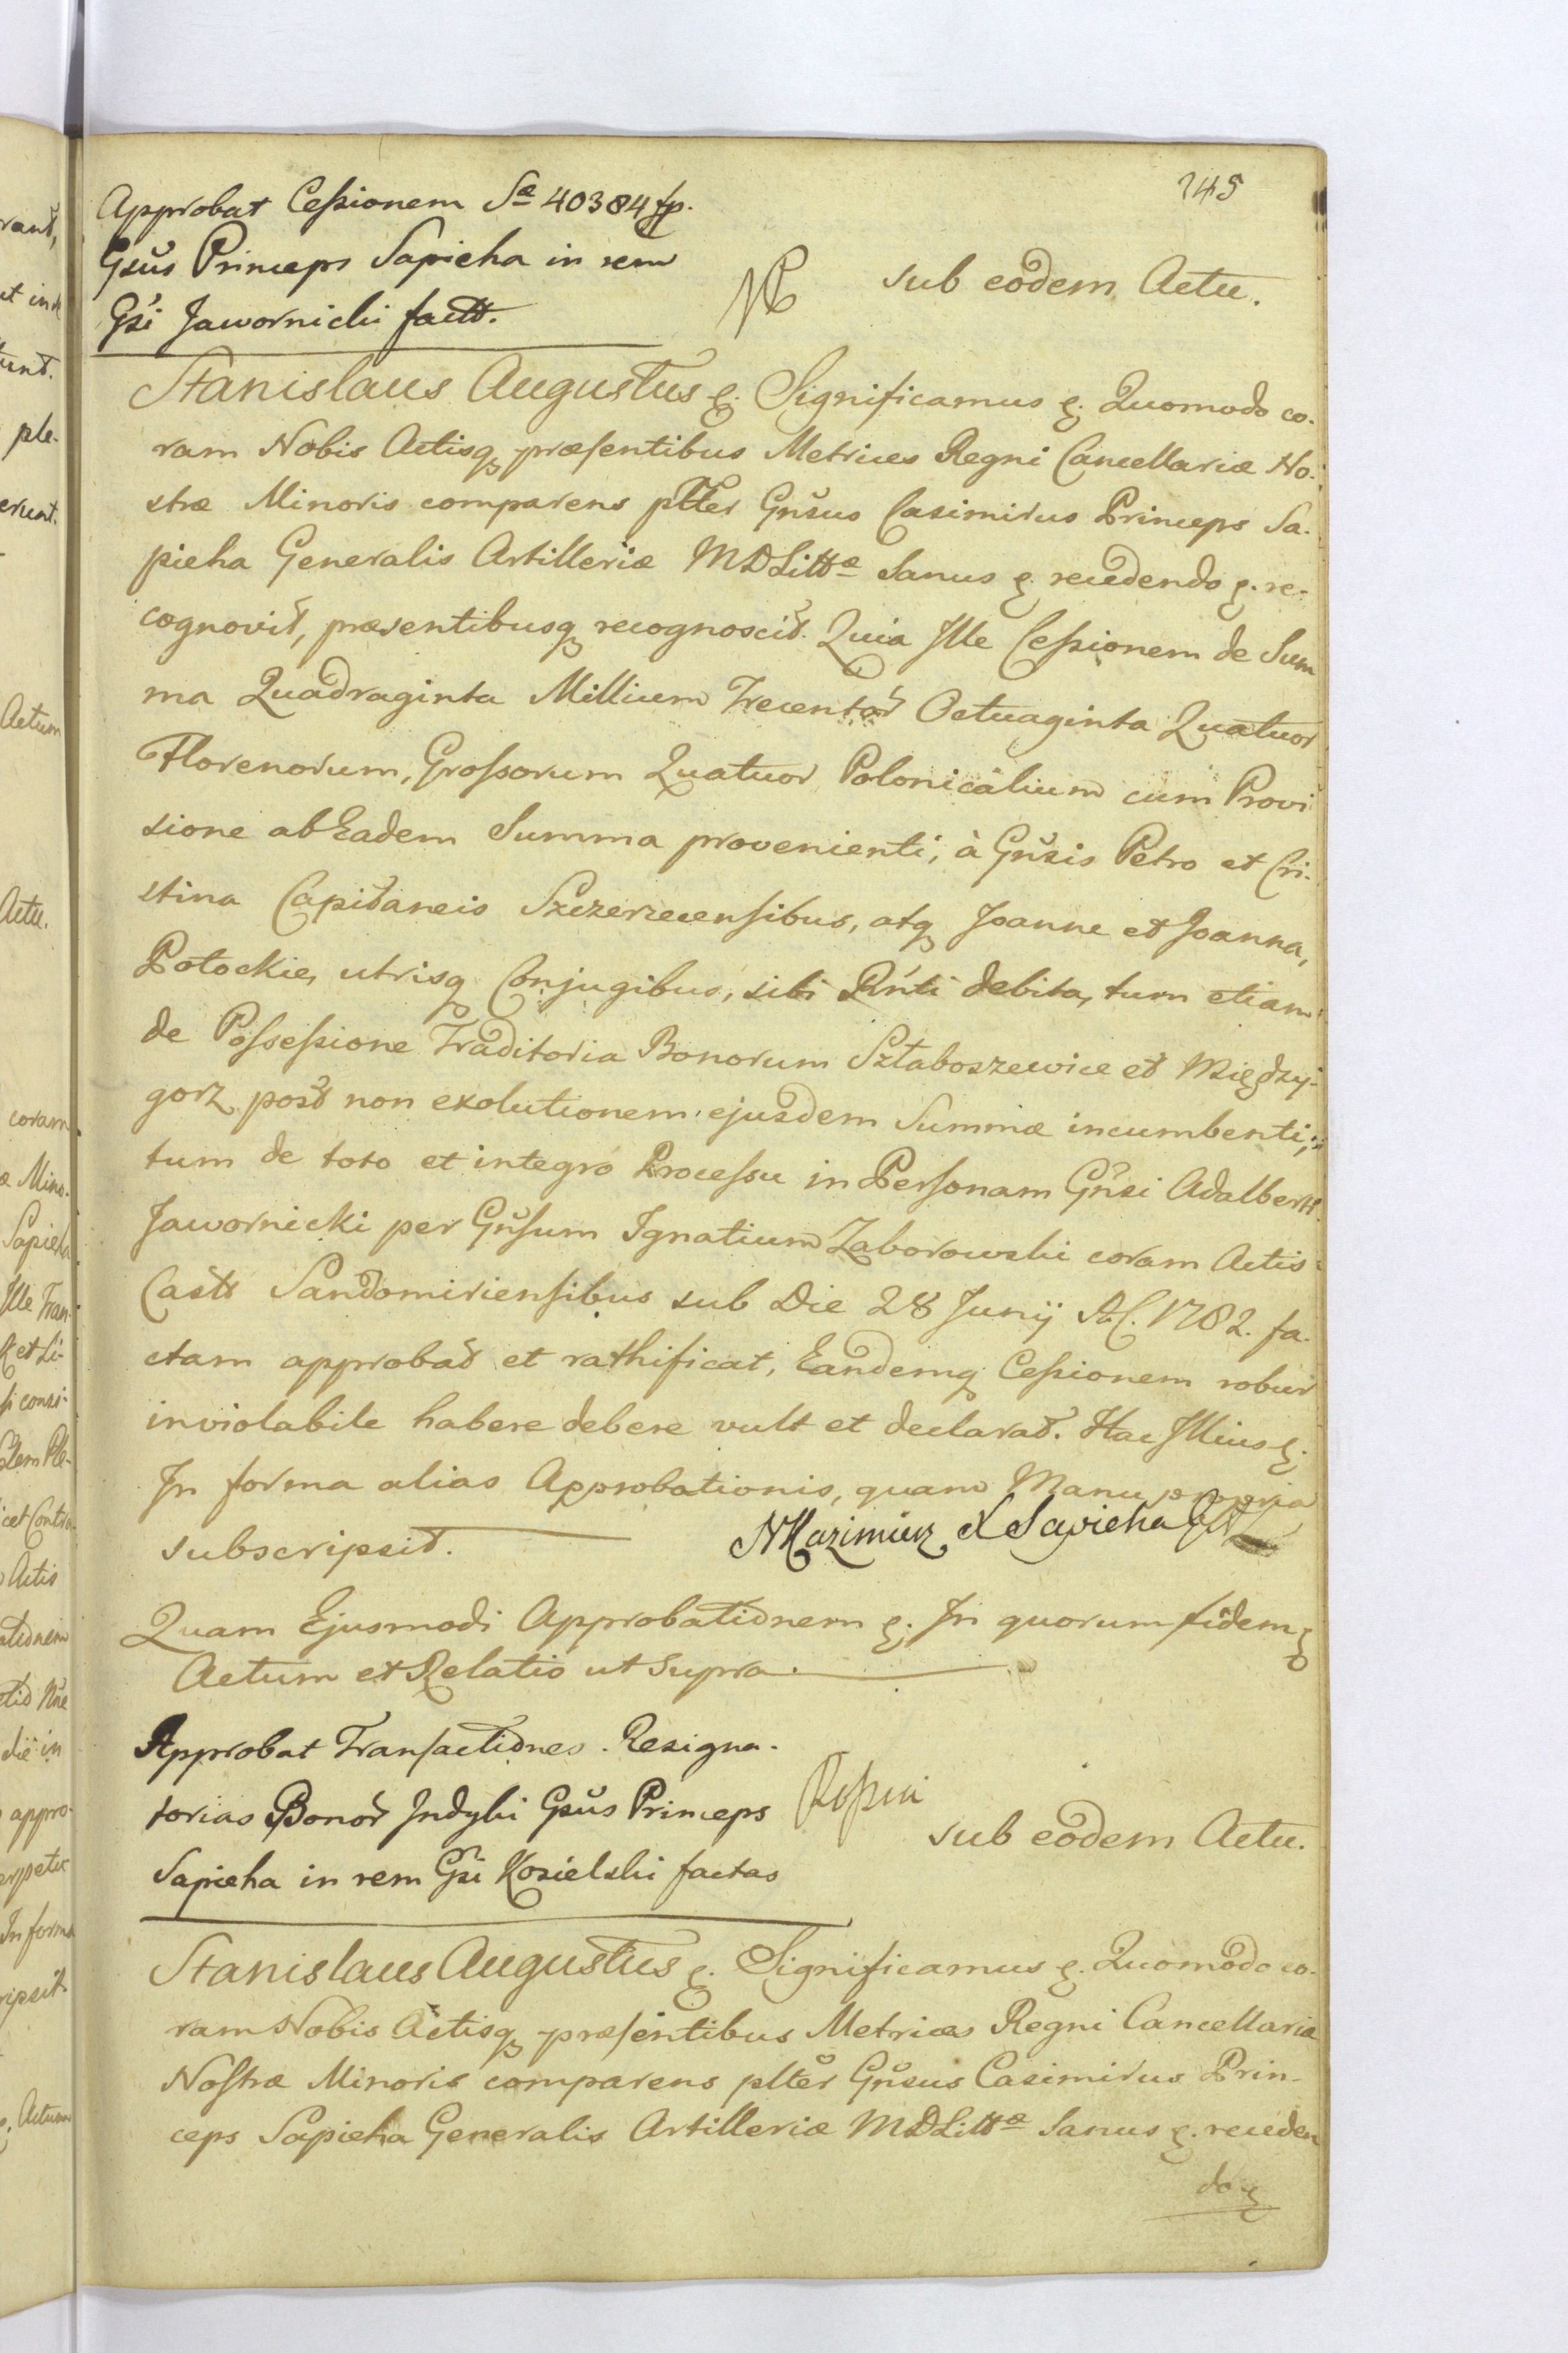 245
Approbat Cessionem Sæ 40384 fp.
Gsus Princeps Sapieha in rem
Gsi Jawornicki factt.
sub eodem Actu.
Stanislaus Augustus &. Significamus &. Quomodo co-
ram Nobis Actisq præsentibus Metrices Regni Cancellariæ No-
stræ Minoris comparens pltter Gnsus Casimirus Princeps Sa-
pieha Generalis Artilleriæ MDLittæ Sanus &. recedendo &. re-
cognovit, præsentibusq recognoscit. Quia Ille Cessionem de Sum
ma Quadraginta Millium Trecentor Octuaginta Quatuor
Florenorum, Grossorum Quatuor Polonicalium cum Provi
sione ab Eadem Summa provenienti, à Gnsis Petro et Cri-
stina Capitaneis Szczerzecensibus, atq Joanne et Joanna,
Potockie, utrisq Conjugibus, sibi Rnti debita, tum etiam
de Possessione Traditoria Bonorum Sztaboszewice et Między-
gorz post non exolutionem ejusdem Summæ incumbenti,
tum de toto et integro Processu in Personam Gnsi Adalbertt
Jawornicki per Gnsum Ignatium Zaborowski coram Actis
Castr Sandomiriensibus sub Die 28 Junij AC. 1782. fa-
ctam approbat et rathificat, Eandemq Cessionem robur
inviolabile habere debere vult et declarat. Hac Illius &.
In forma alias Approbationis, quam Manu propria
subscripsit. Kazimierz X Sapieha
Quam Ejusmodi Approbationem &. In quorum fidem &
Actum et Relatio ut supra.
Approbat Transactiones Resigna-
torias Bonor Indyki Gsus Princeps
Sapieha in rem Gsi Kozielski factas
sub eodem Actu.
Stanislaus Augustus &. Significamus &. Quomodo co-
ram Nobis Actisq præsentibus Metrices Regni Cancellariæ
Nostræ Minoris comparens pltter Gnsus Casimirus Prin-
ceps Sapieha Generalis Artilleriæ MDLittæ Sanus &. receden
do &